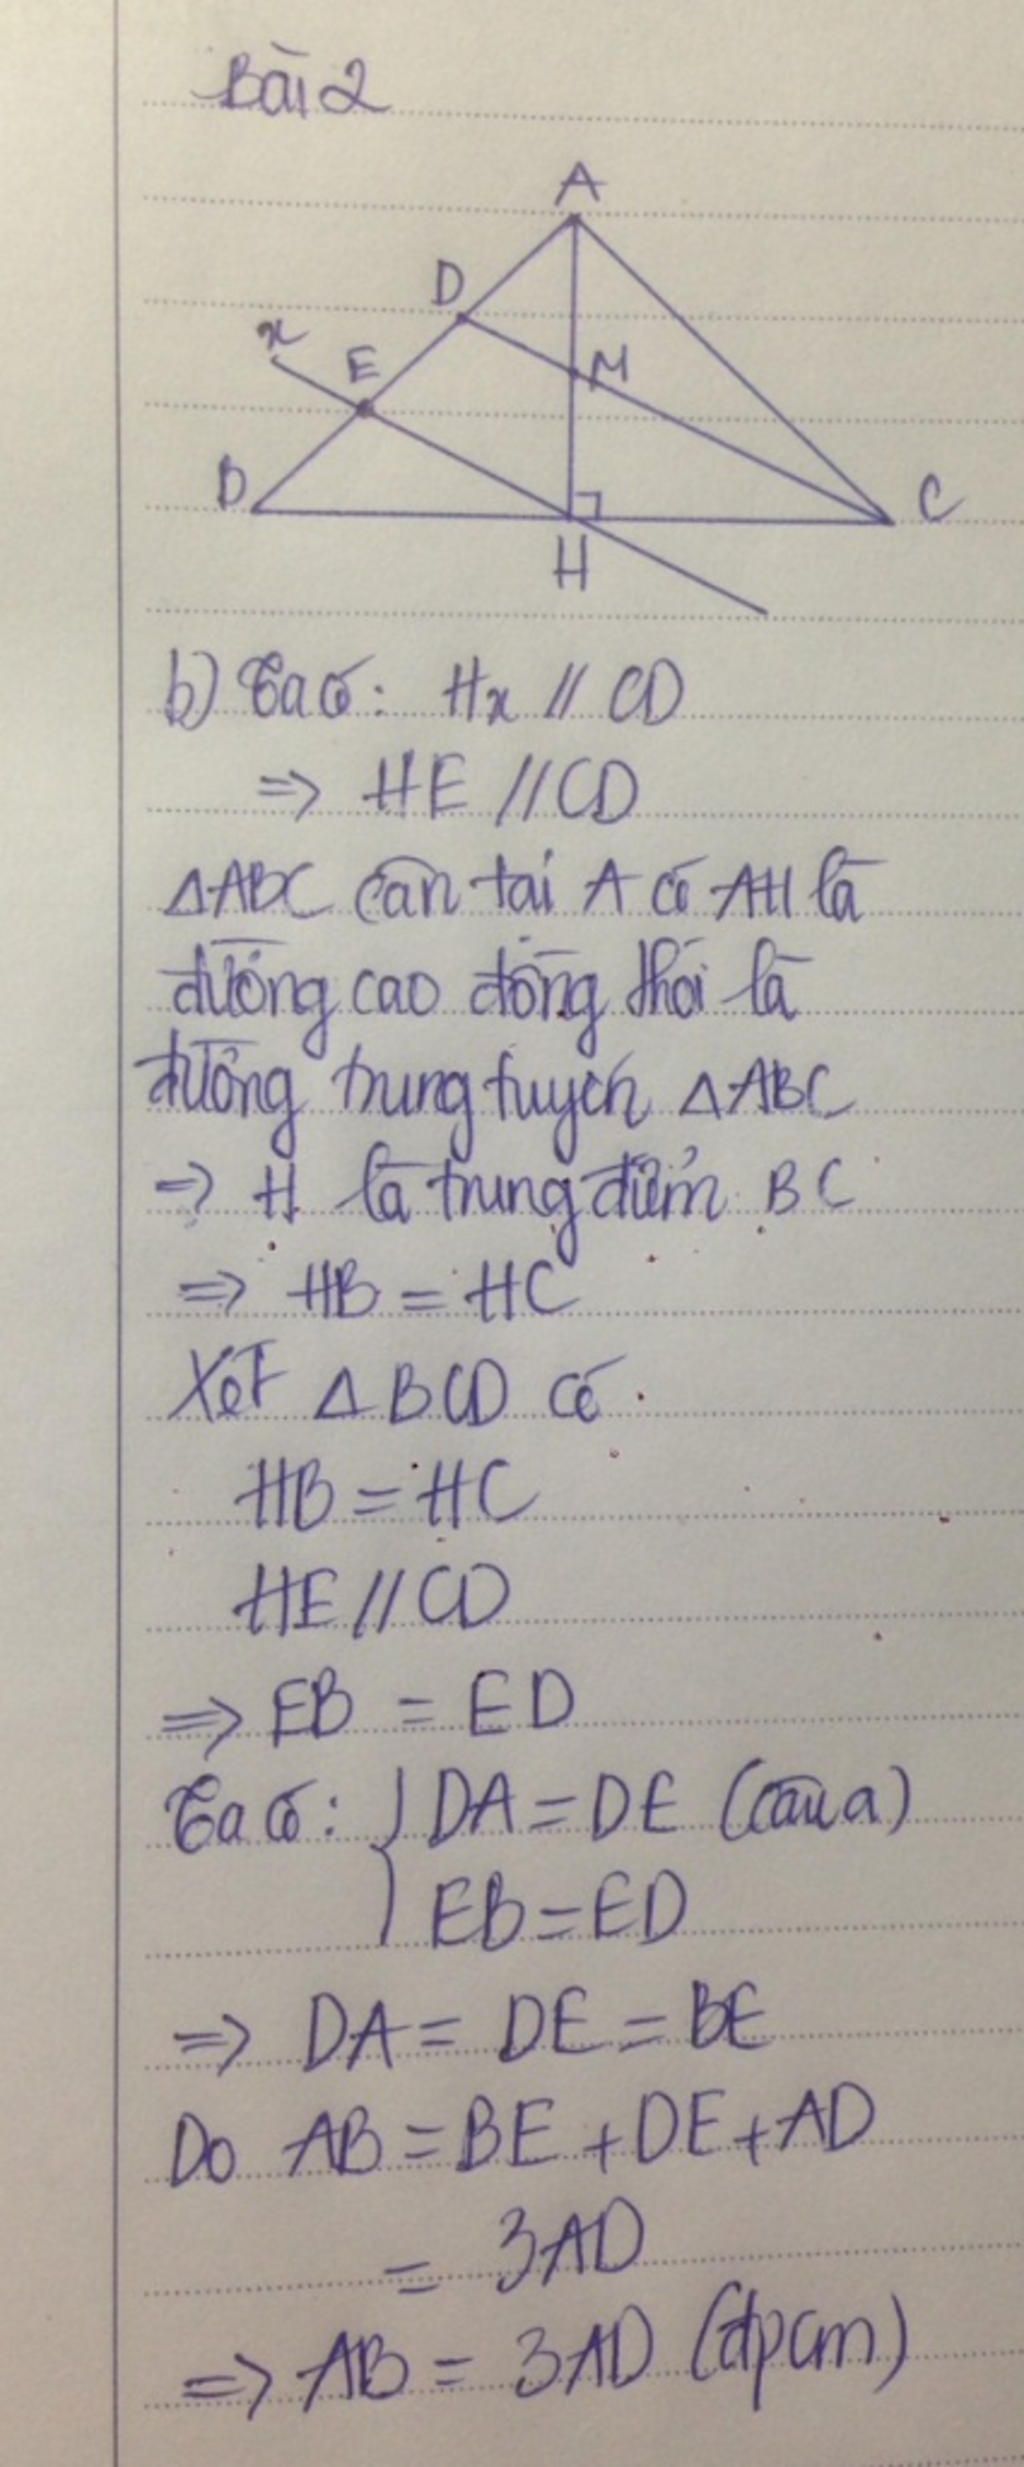 Bài 2
A
D
x
E
M
B
C
H
b) Ta có: Hx // CD
=> HE // CD
△ABC cân tại A có AH là
đường cao đồng thời là
đường trung tuyến △ABC
=> H là trung điểm BC
=> HB = HC
Xét △BCD có
HB = HC
HE // CD
=> EB = ED
Ta có: { DA = DE (câu a)
EB = ED
=> DA = DE = BE
Do AB = BE + DE + AD
= 3AD
=> AB = 3AD (đpcm)